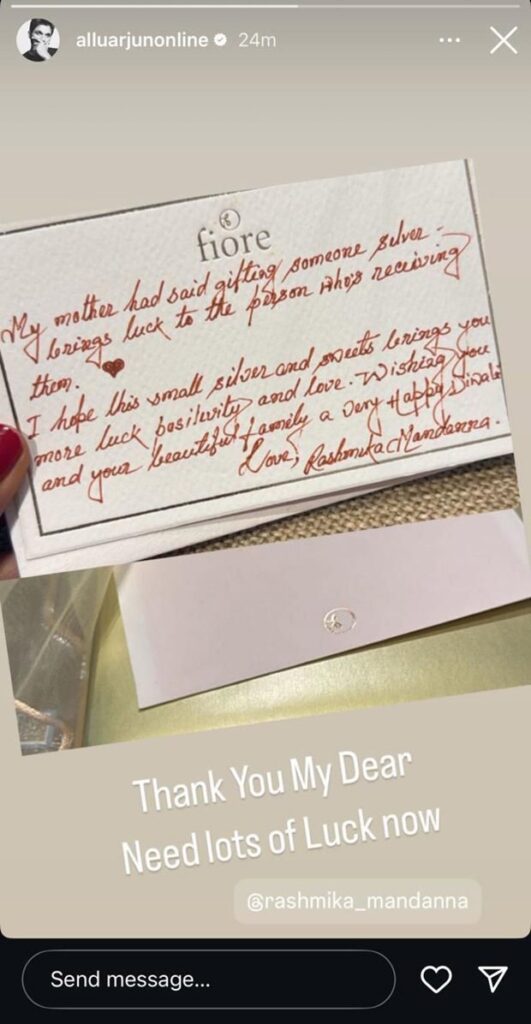 alluarjunonline 24m
fiore
My mother had said gifting someone silver -
brings luck to the person who's receiving
them.
I hope this small silver and sweets brings you
more luck positivity and love. Wishing you
and your beautiful family a very Happy Diwali
Love, Rashmika Mandanna.
Thank You My Dear
Need lots of Luck now
@rashmika_mandanna
Send message...